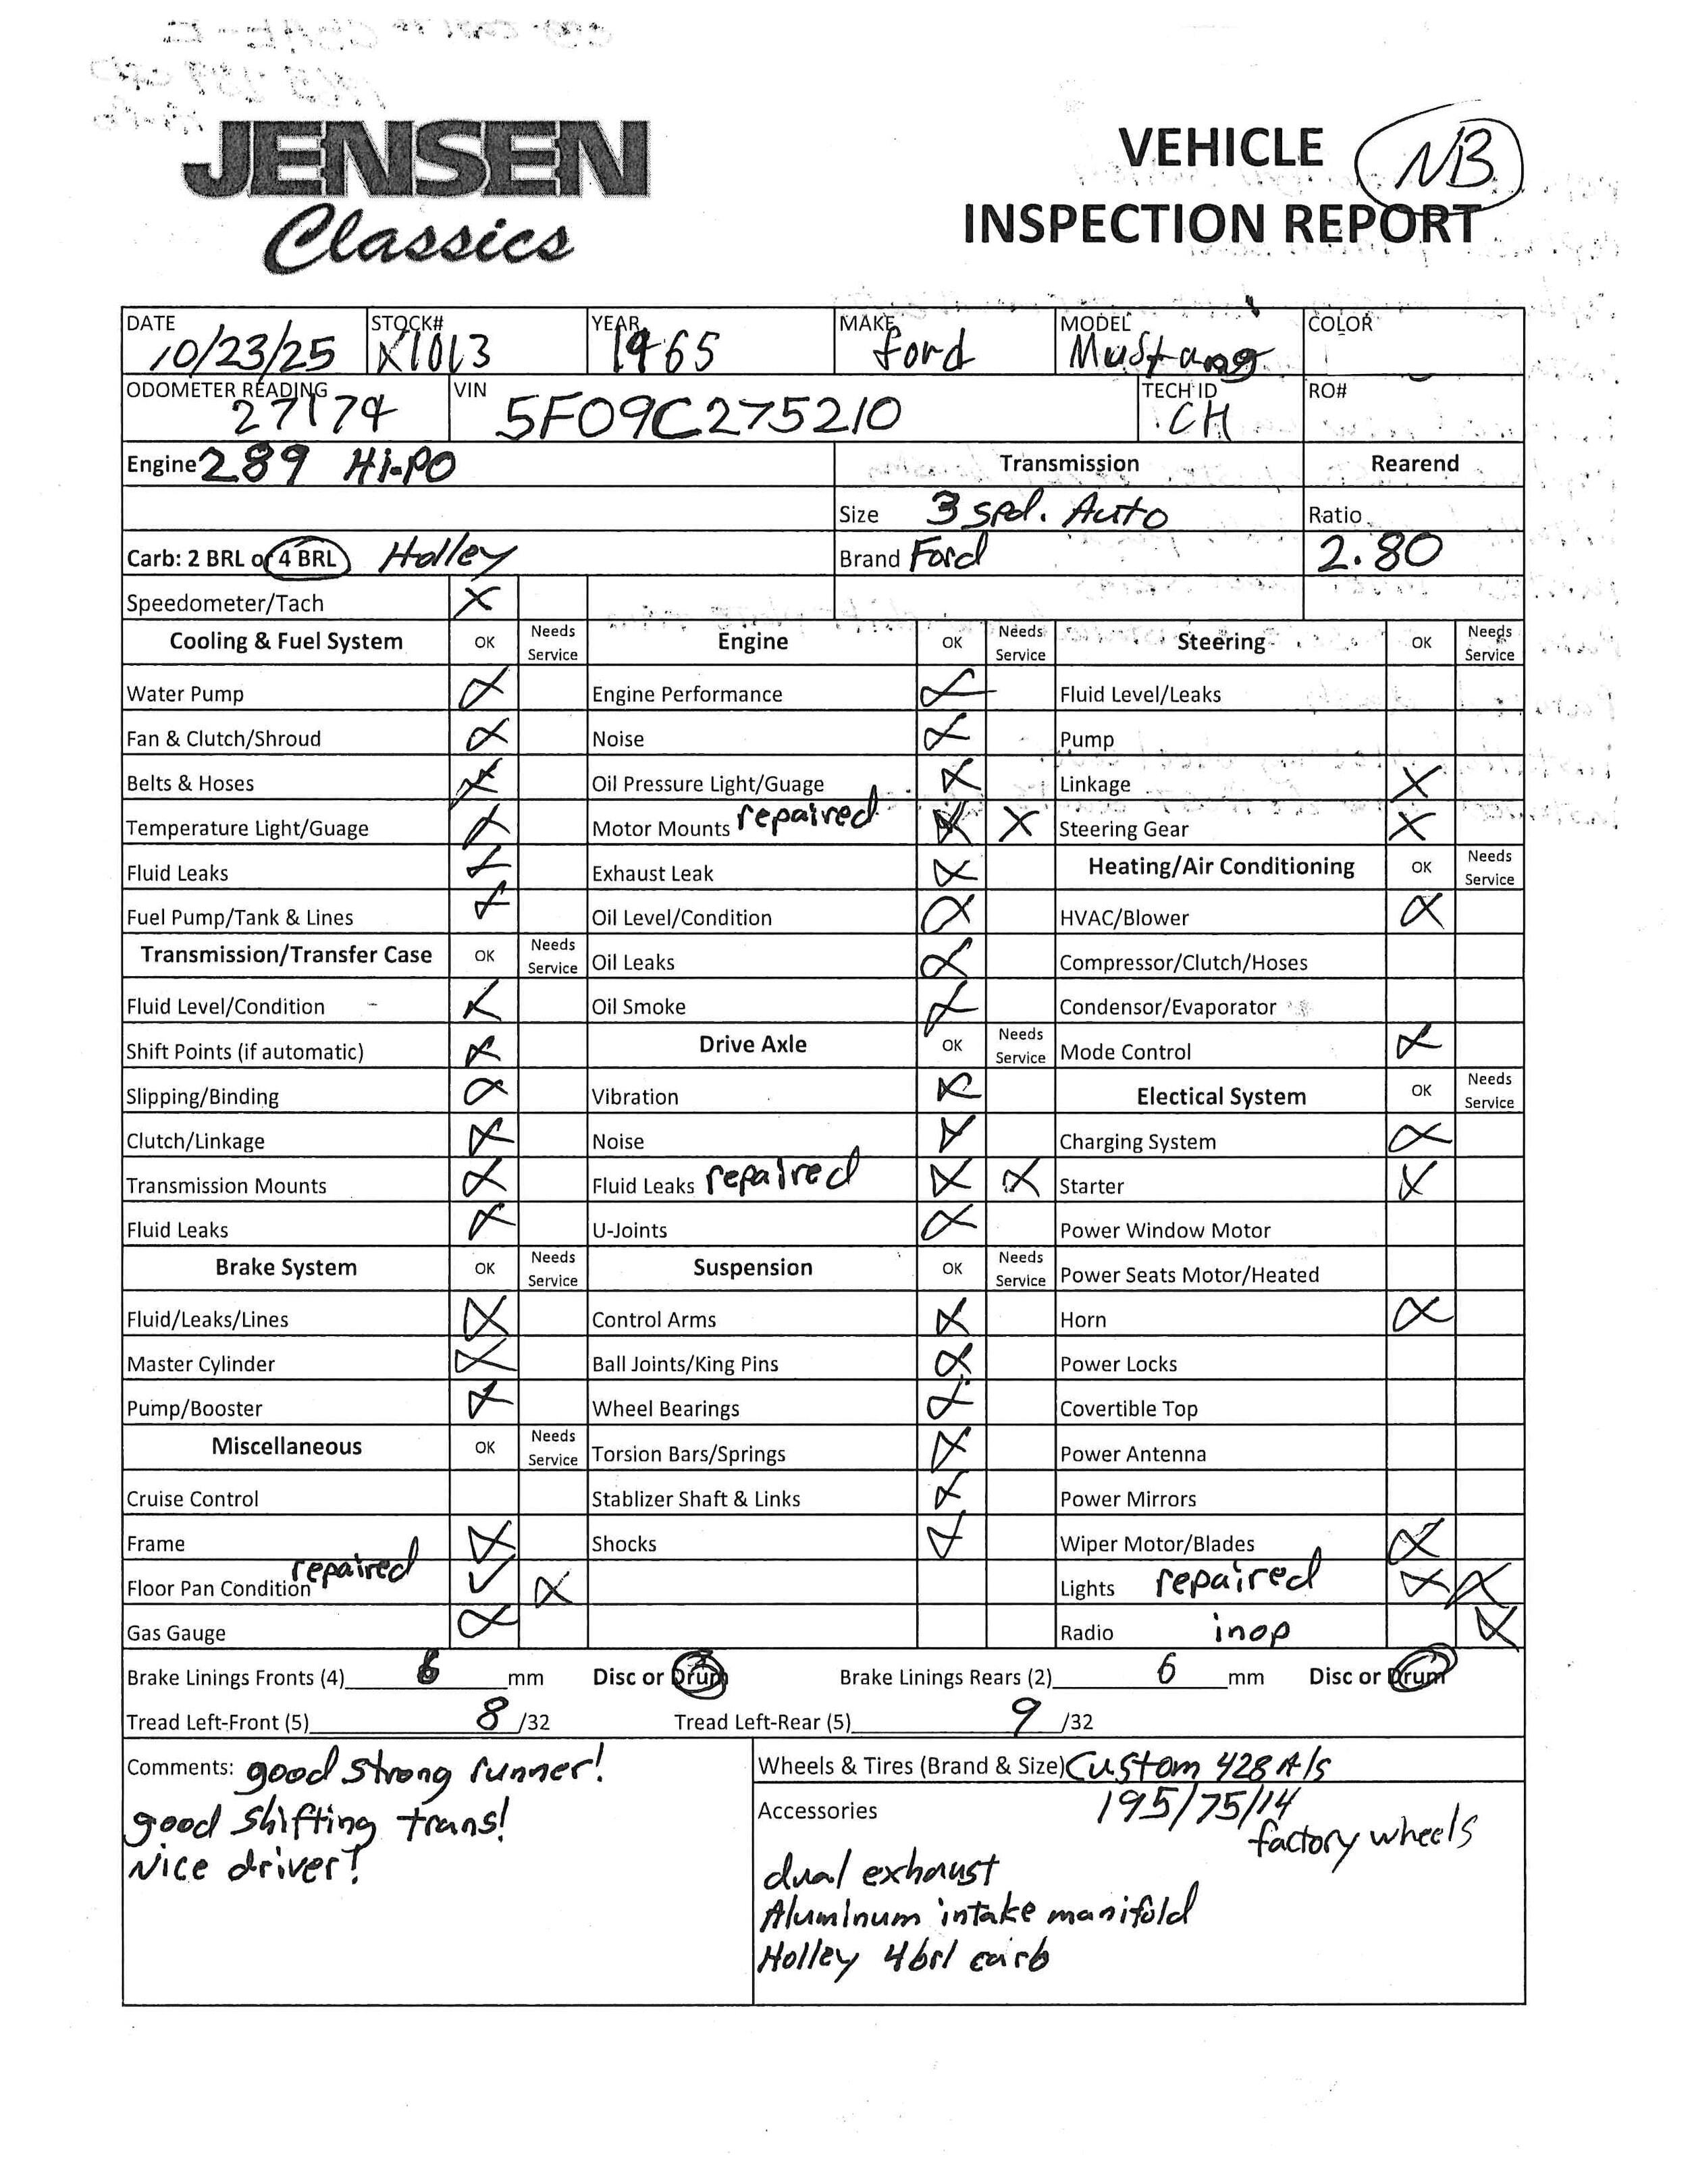 JENSEN
Classics
VEHICLE
INSPECTION REPORT
NB
DATE 10/23/25 STOCK# X1013 YEAR 1965 MAKE Ford MODEL Mustang COLOR
ODOMETER READING 27174 VIN 5F09C275210 TECH ID CH RO#
Engine 289 Hi-PO Transmission Rearend
Size 3 spd. Auto Ratio
Carb: 2 BRL or 4 BRL Holley Brand Ford 2.80
Speedometer/Tach X
Cooling & Fuel System OK Needs Service Engine OK Needs Service Steering OK Needs Service
Water Pump X Engine Performance X Fluid Level/Leaks
Fan & Clutch/Shroud X Noise X Pump
Belts & Hoses X Oil Pressure Light/Guage X Linkage X
Temperature Light/Guage X Motor Mounts repaired X X Steering Gear X
Fluid Leaks X Exhaust Leak X Heating/Air Conditioning OK Needs Service
Fuel Pump/Tank & Lines X Oil Level/Condition X HVAC/Blower X
Transmission/Transfer Case OK Needs Service Oil Leaks X Compressor/Clutch/Hoses
Fluid Level/Condition X Oil Smoke X Condensor/Evaporator
Shift Points (if automatic) X Drive Axle OK Needs Service Mode Control X
Slipping/Binding X Vibration X Electical System OK Needs Service
Clutch/Linkage X Noise X Charging System X
Transmission Mounts X Fluid Leaks repaired X X Starter X
Fluid Leaks X U-Joints X Power Window Motor
Brake System OK Needs Service Suspension OK Needs Service Power Seats Motor/Heated
Fluid/Leaks/Lines X Control Arms X Horn X
Master Cylinder X Ball Joints/King Pins X Power Locks
Pump/Booster X Wheel Bearings X Covertible Top
Miscellaneous OK Needs Service Torsion Bars/Springs X Power Antenna
Cruise Control Stablizer Shaft & Links X Power Mirrors
Frame X Shocks X Wiper Motor/Blades X
Floor Pan Condition repaired ✓ X Lights repaired X X
Gas Gauge X Radio inop X
Brake Linings Fronts (4) 6 mm Disc or Drum Brake Linings Rears (2) 6 mm Disc or Drum
Tread Left-Front (5) 8 /32 Tread Left-Rear (5) 9 /32
Comments: good strong runner!
good shifting trans!
Nice driver!
Wheels & Tires (Brand & Size) Custom 428 A/S
Accessories 195/75/14
factory wheels
dual exhaust
Aluminum intake manifold
Holley 4brl carb